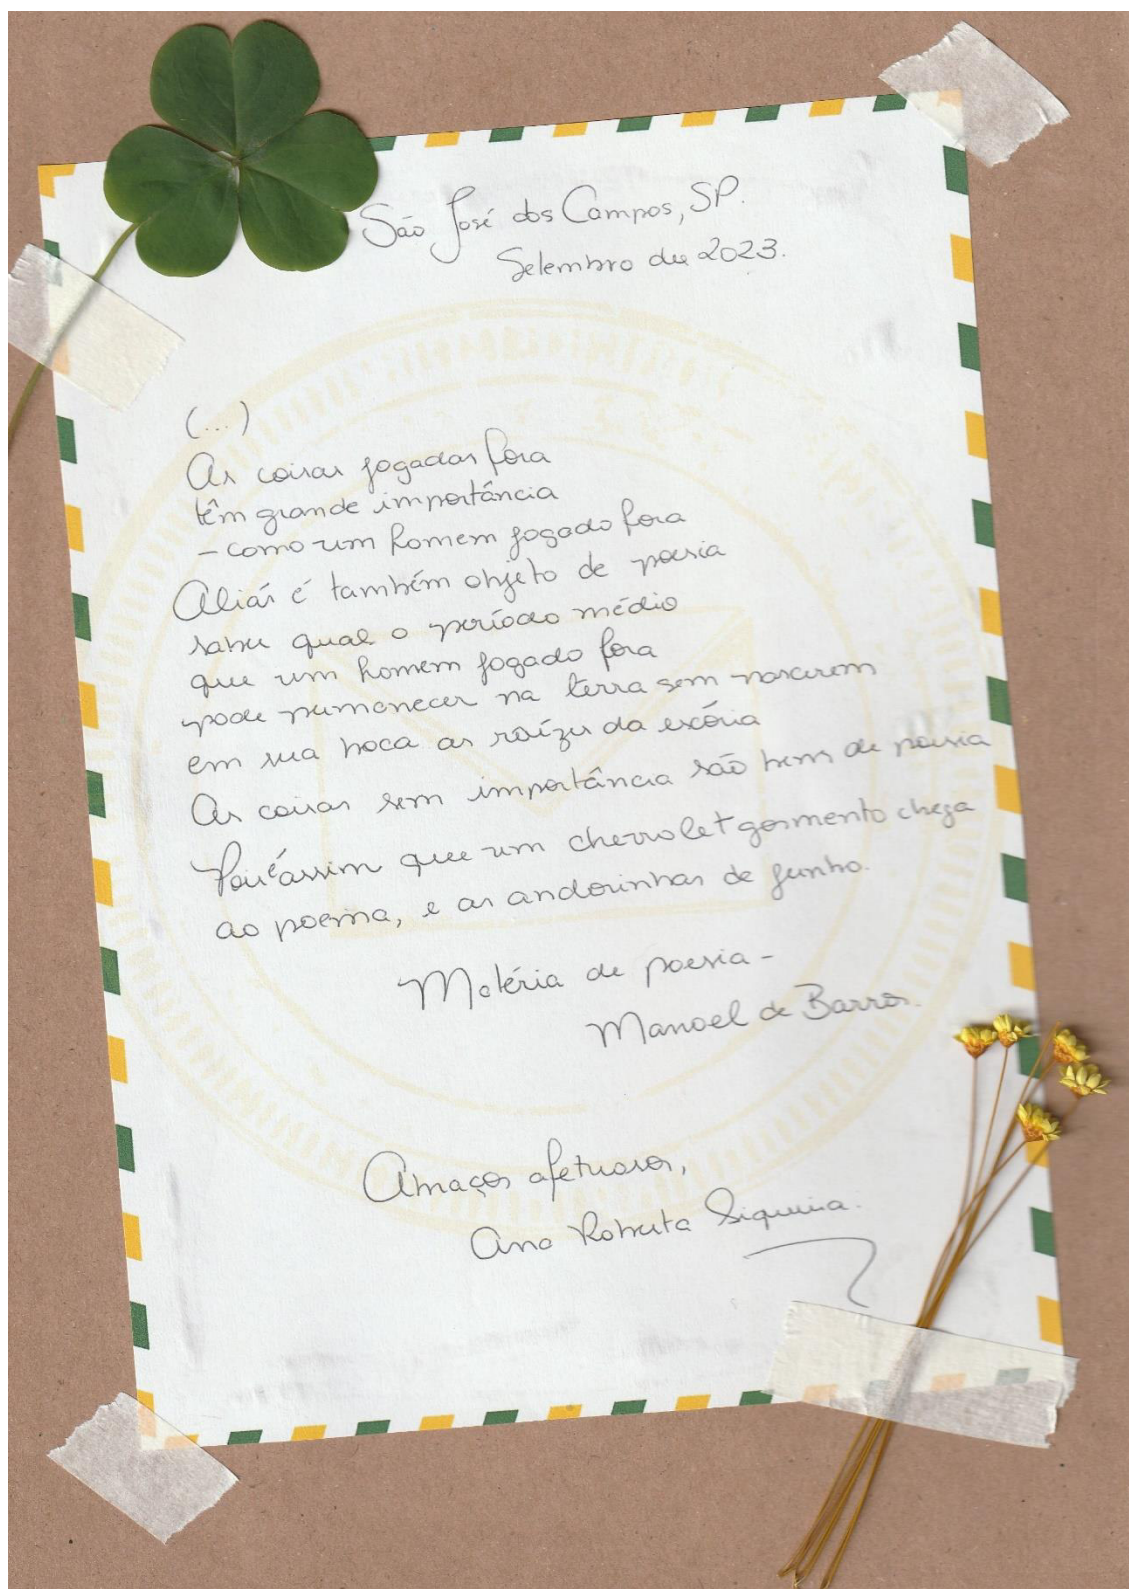 São José dos Campos, SP.
Setembro de 2023.
(...)
As coisas jogadas fora
têm grande importância
– como um homem jogado fora
Aliás é também objeto de poesia
saber qual o período médio
que um homem jogado fora
pode permanecer na terra sem nascerem
em sua boca as raízes da escória
As coisas sem importância são bens de poesia
Pois é assim que um chevrolet gosmento chega
ao poema, e as andorinhas de junho.
Matéria de poesia –
Manoel de Barros.
Abraços afetuosos,
Ana Roberta Siqueira.